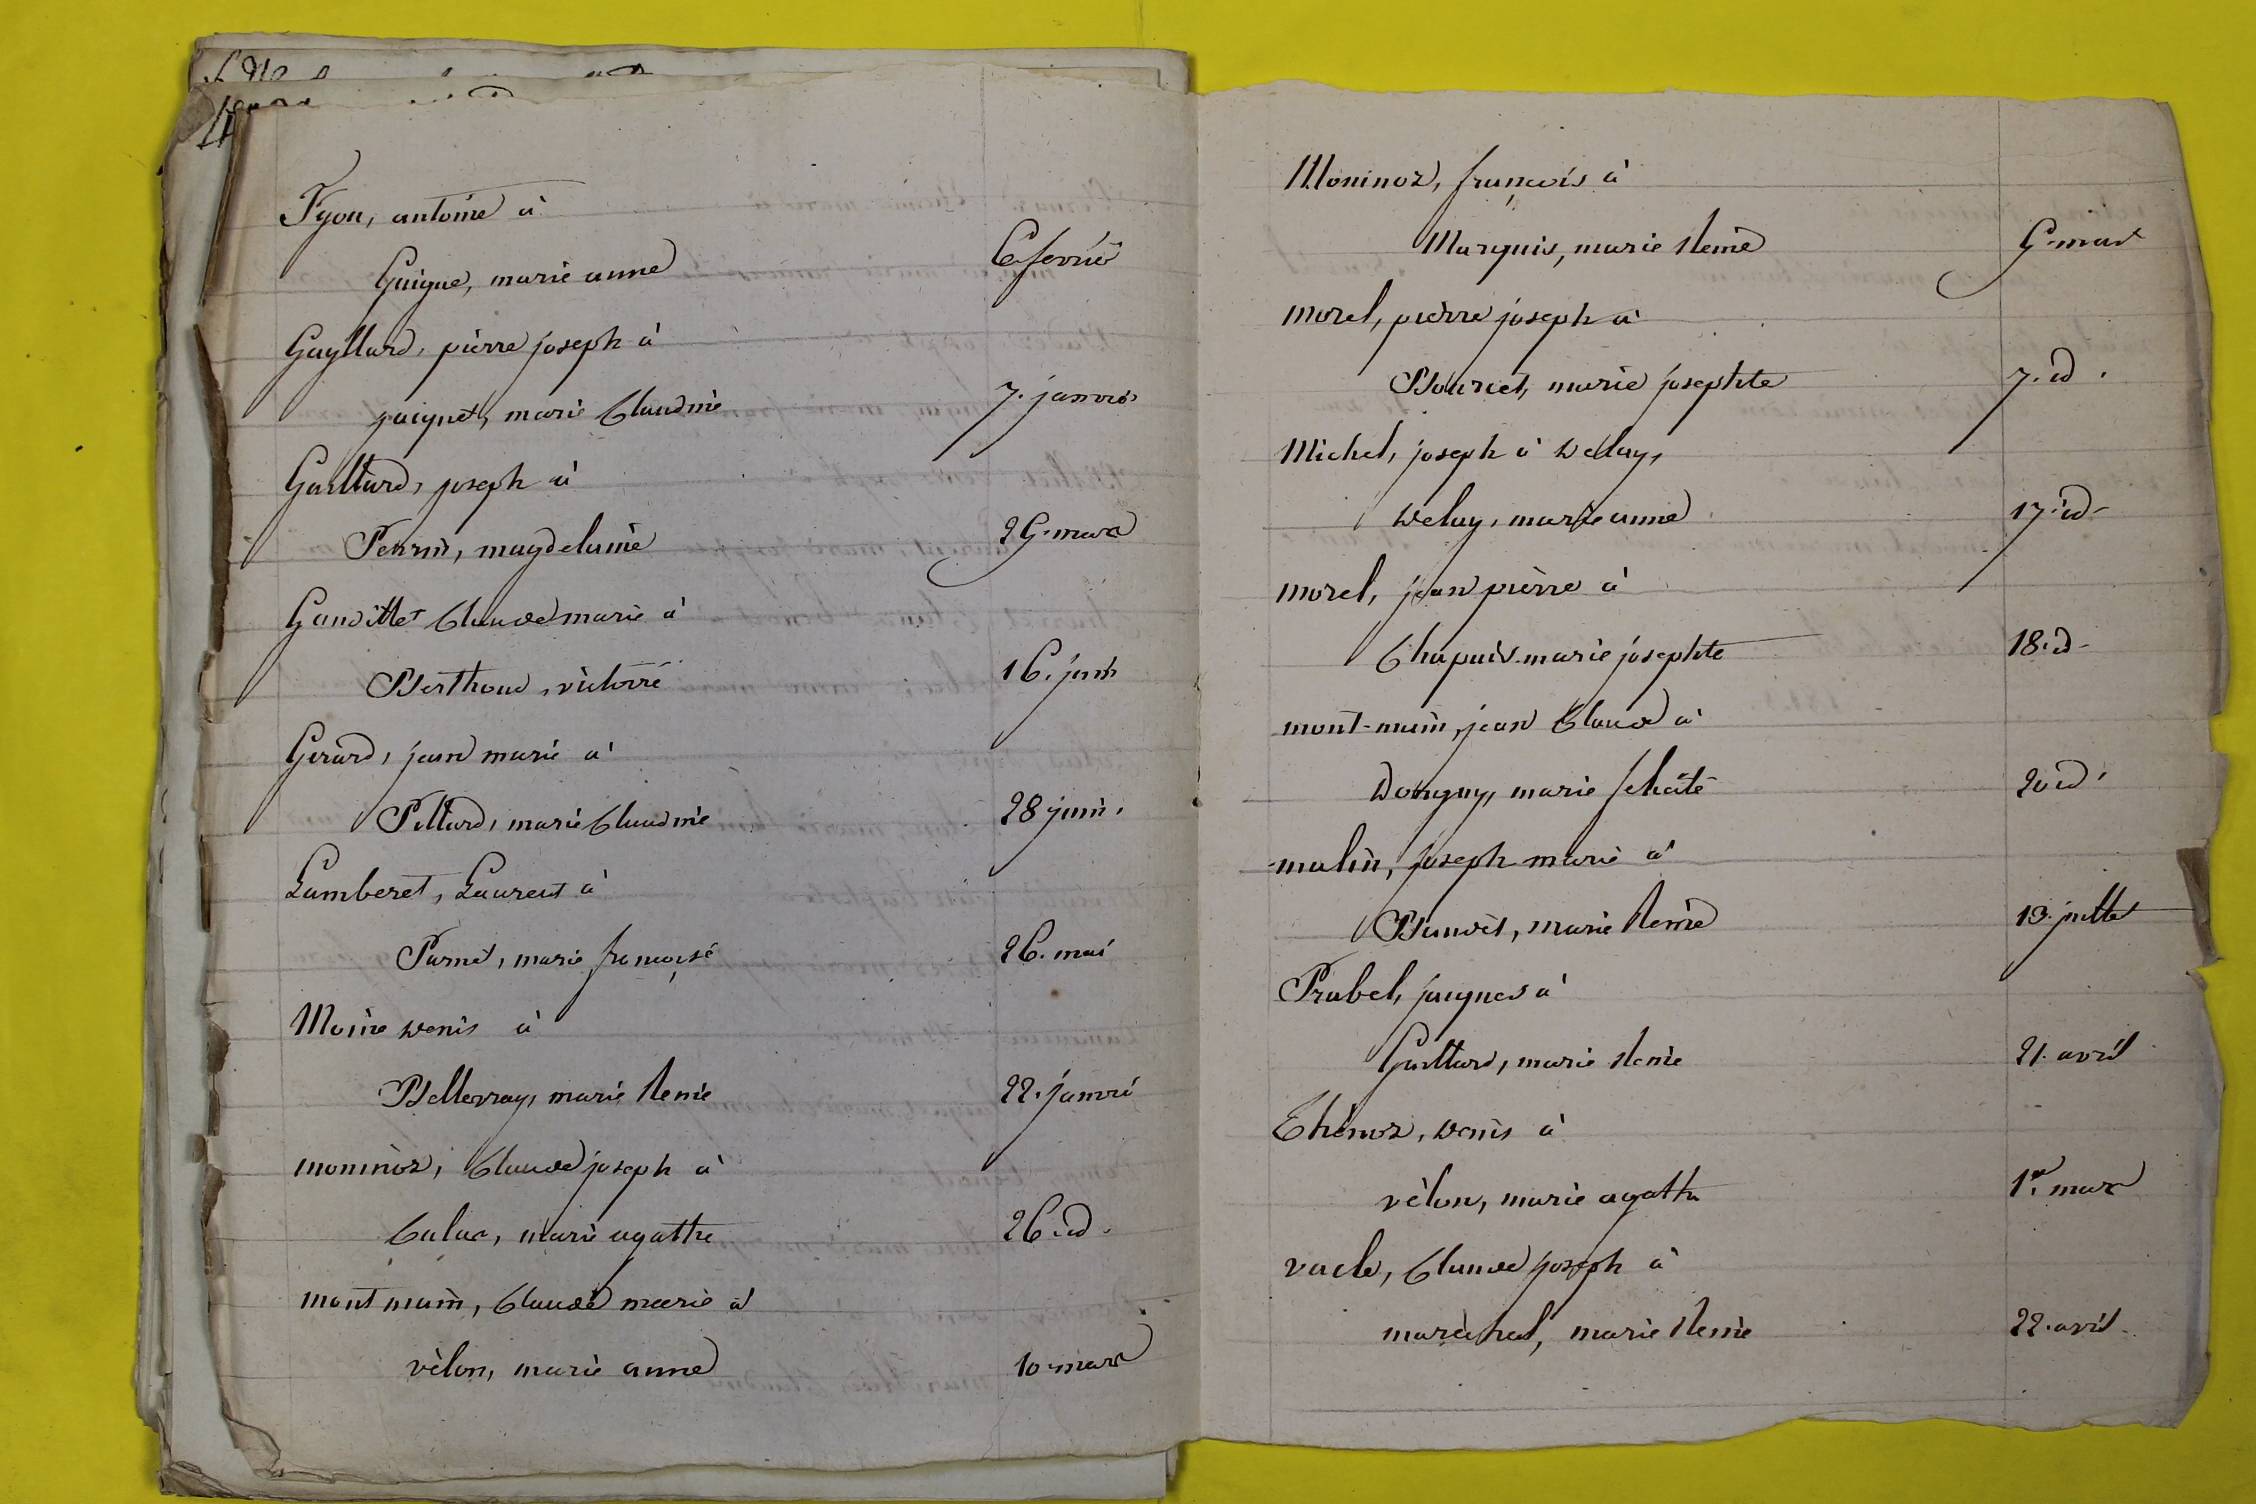 Fyon, antoine à
Guigue, marie anne 6 fevrier
Gayllard, pierre joseph à
paignet, marie Claudine 7. janvier
Gaillard, joseph à
Perrin, magdelaine 29. mars
Gandillet Claude marie à
Berthoud, victoire 16. juin
Gerard, jean marie à
Pillard, marie Claudine 28 juin.
Lamberet, Laurent à
Parnet, marie françoise 26. mai
Moine denis à
Bellevray, marie Renie 22. janvi
moninoz, Claude joseph à
Calas, marie agathe 26. id.
montmain, Claude marie à
vèlon, marie anne 10 mars
Moninoz, françois à
Marquis, marie Renie 9. mars
morel, pierre joseph à
Bourcet, marie josephte 7. id.
Michel, joseph à delay,
delay, marie anne 17. id.
morel, jean pierre à
Chapuis. marie josephte 18. id.
mont-main, jean Claude à
marie felicité 20 id.
malin, joseph marie à
Bandet, marie Renie 13. juillet
Prabel, jaques à
Gaillard, marie Renie 21. avril
Thénoz, denis à
vèlon, marie agathe 1er. mars
vacle, Claude joseph à
marèchal, marie Renie 22. avril.